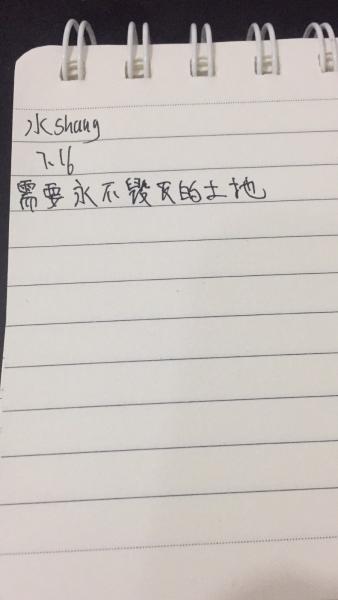 水shang
7.16
需要永不毁灭的土地